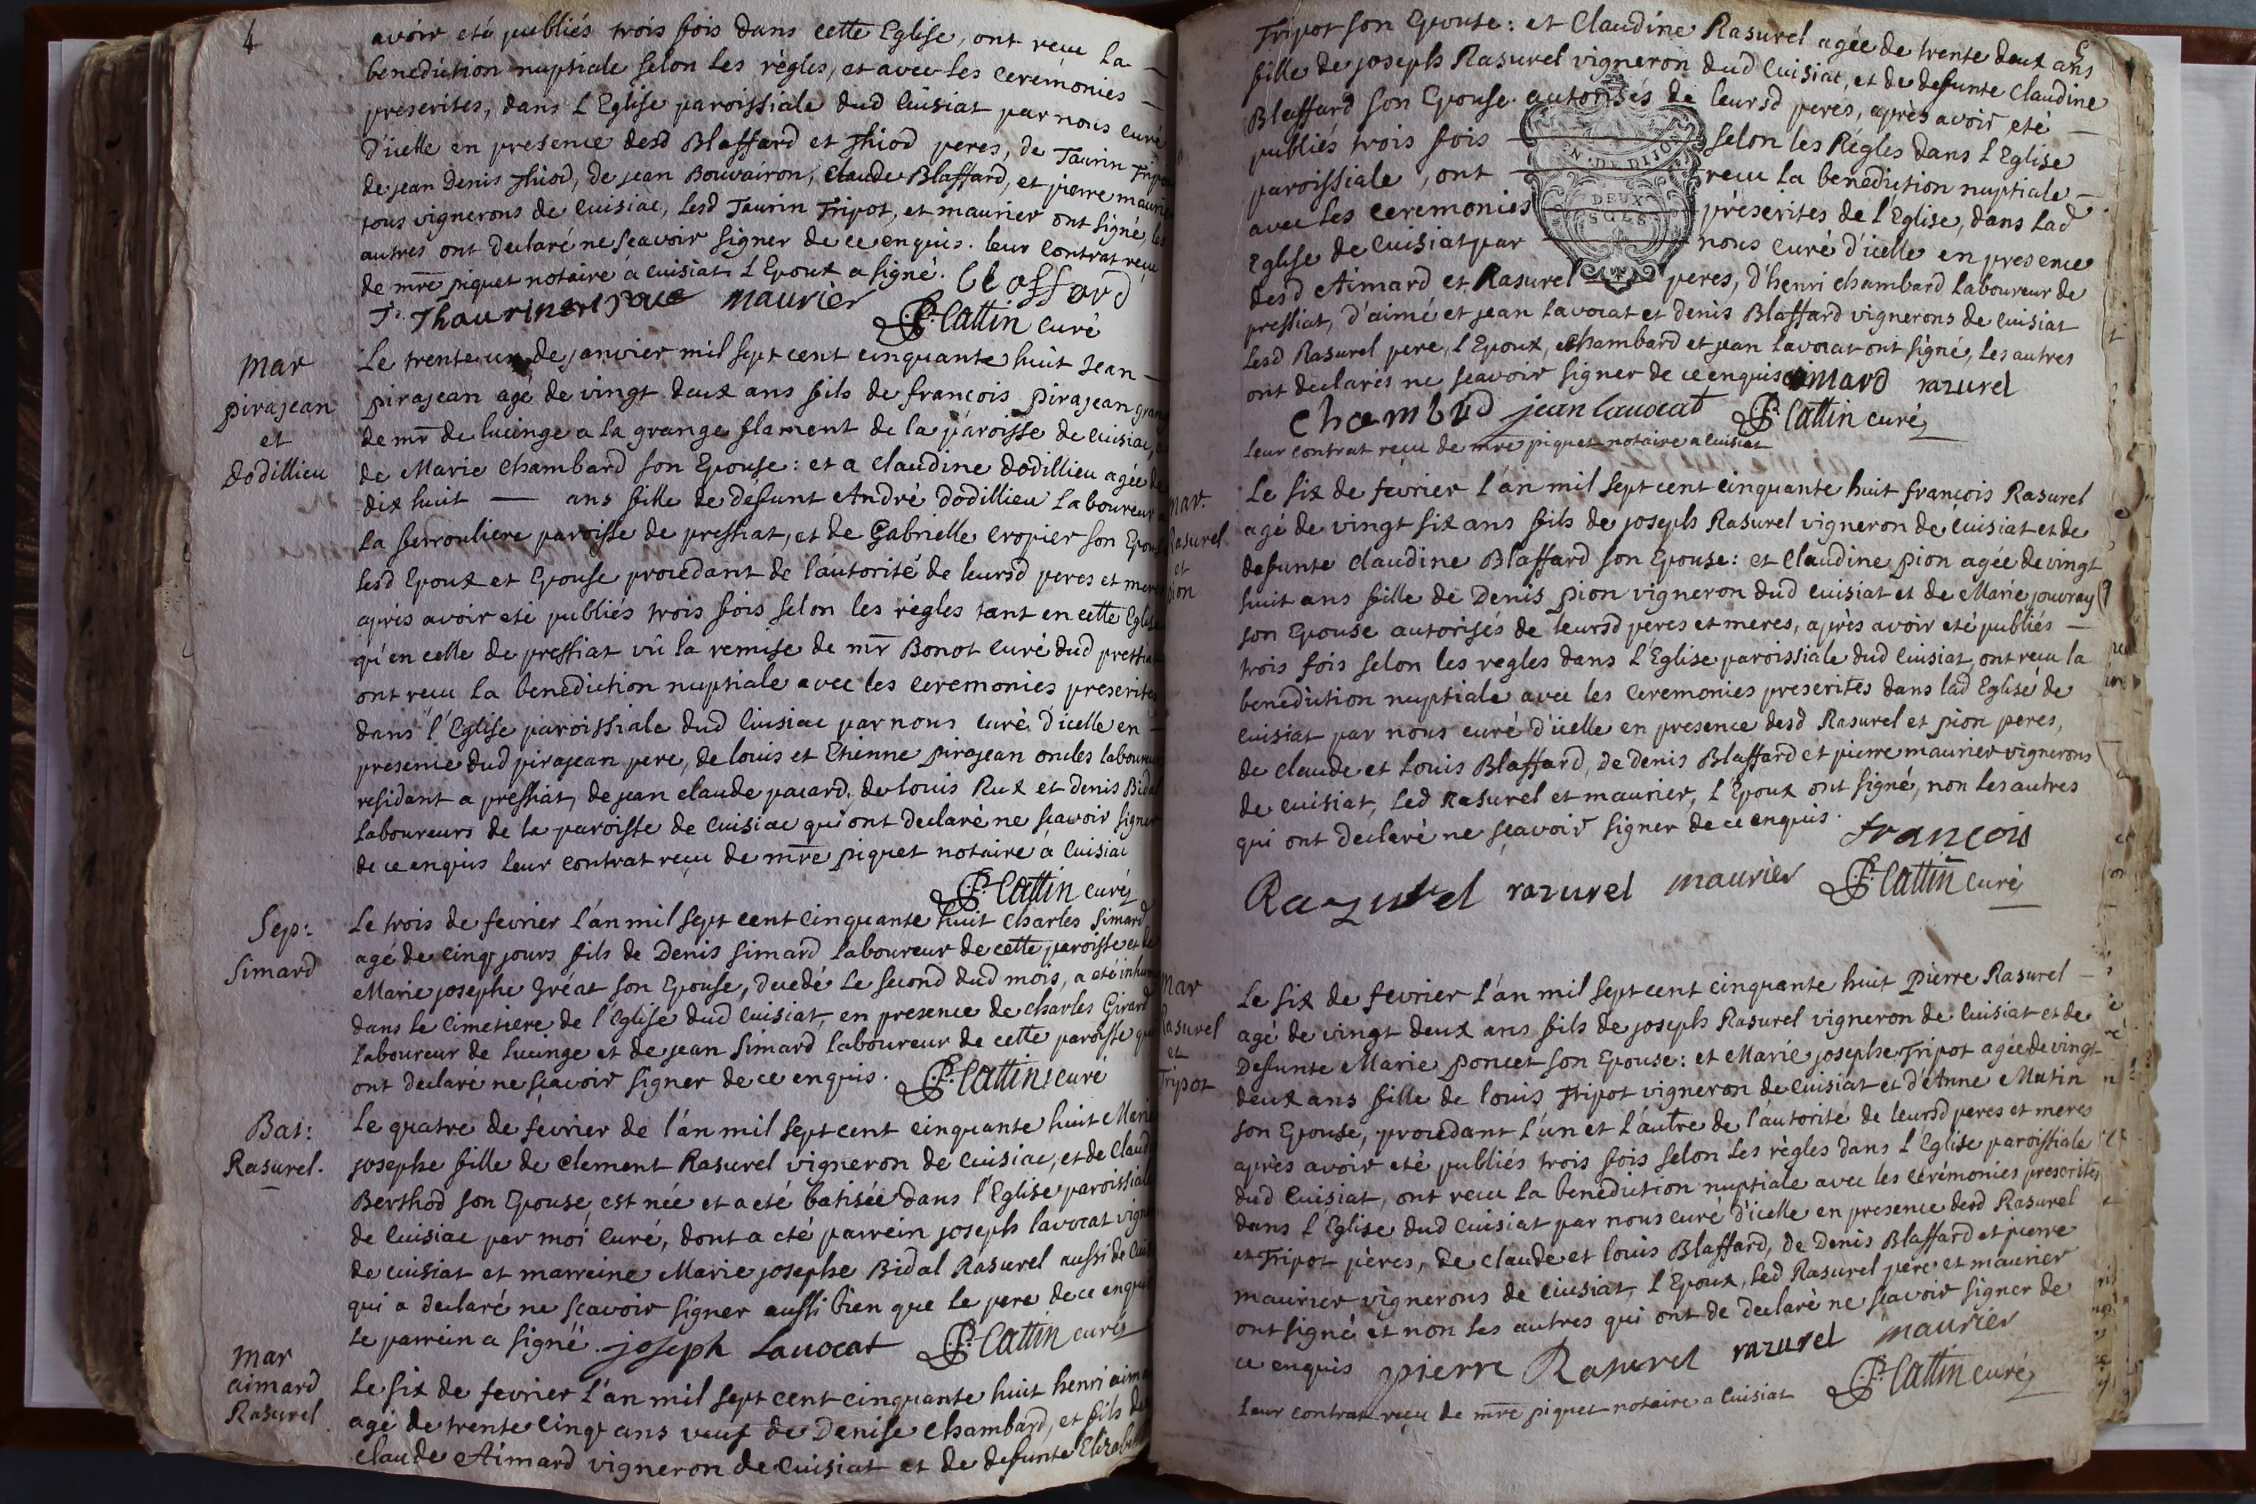 4
avoir eté publiés trois fois dans cette Eglise, ont reçu la —
benediction nuptiale selon les règles, et avec les ceremonies —
prescrites, dans l'Eglise paroissiale dud Cuisiat par nous curé
d'icelle en presence desd Blaffard et Thiod peres, de Taurin
de jean Denis Thiod, de jean Bouvairon, Claude Blaffard, et pierre maurier
tous vignerons de Cuisiac, lesd Taurin Tripot, et maurier ont signé, les
autres ont declaré ne scavoir signer de ce enquis. leur contrat reçu
de mre piquet notaire à cuisiat. l'Epoux a signé. blaffard
maurier
P. Cattin curé
Mar
pirajean
et
Dodillieu
Le trente un de janvier mil sept cent cinquante huit Jean —
pirajean agé de vingt deux ans fils de francois pirajean
de mr de lucinge a la grange flament de la paroisse de Cuisiac,
de Marie Chambard son Epouse: et a Claudine Dodillieu agée de
dix huit — ans fille de defunt André Dodillieu laboureur
la serrouliere paroisse de pressiat, et de Gabrielle cropier son Epouse
lesd Epoux et Epouse procedant de l'autorité de leursd peres et meres
après avoir eté publiés trois fois selon les règles tant en cette Eglise
qu'en celle de pressiat vû la remise de mr Bonot Curé dud pressiat
ont reçu la benediction nuptiale avec les ceremonies prescrites
dans l'Eglise paroissiale dud Cuisiac par nous curé d'icelle en —
presence dud pirajean pere, de louis et Etienne pirajean oncles laboureurs
residant a pressiat, de jean claude pacard, de louis Rux et denis Bidal
laboureurs de la paroisse de Cuisiac qui ont declaré ne scavoir signer
de ce enquis leur contrat reçu de mre piquet notaire à Cuisiac
P. Cattin curé
Sep:
Simard
Le trois de fevrier l'an mil sept cent cinquante huit Charles Simard
agé de cinq jours fils de Denis Simard laboureur de cette paroisse et de
Marie josephe Gréat son Epouse, decedé le second dud mois, a eté inhumé
dans le Cimetiere de l'Eglise dud Cuisiat, en presence de Charles Girard
laboureur de Lucinge et de jean Simard laboureur de cette paroisse qui
ont declaré ne scavoir signer de ce enquis. P. Cattin curé
Bat:
Rasurel.
Le quatre de fevrier de l'an mil sept cent cinquante huit Marie
josephe fille de Clement Rasurel vigneron de Cuisiac, et de Claudine
Berthod son Epouse est née et a eté batisée dans l'Eglise paroissiale
de Cuisiac par moi Curé, dont a eté parrein joseph lavocat vigneron
de Cuisiat et marreine Marie josephe Bidal Rasurel aussi de
qui a declaré ne scavoir signer aussi bien que le pere de ce enquis
le parrein a signé. joseph Lavocat P. Cattin curé
Mar
aimard
Rasurel
Le six de fevrier l'an mil sept cent cinquante huit henri aimard
agé de trente cinq ans veuf de Denise Chambard, et fils de
Claude Aimard vigneron de Cuisiat et de defunte Elizabeth
Tripot son Epouse: et Claudine Rasurel agée de trente deux ans
fille de joseph Rasurel vigneron dud Cuisiat, et de defunte Claudine
Blaffard son Epouse. autorisés de leursd peres, après avoir eté —
publiés trois fois — selon les Règles dans l'Eglise
N. DE DIJON
paroissiale, ont — reçu la benediction nuptiale —
DEUX
SOLS
avec les ceremonies — prescrites de l'Eglise, dans lad
Eglise de Cuisiat par — nous curé d'icelle en presence
desd Aimard et Rasurel peres, d'henri Chambard laboureur de
pressiat, d'aimé et jean lavocat et denis Blaffard vignerons de Cuisiat
lesd Rasurel pere, l'Epoux, Chambard et jean lavocat ont signé, les autres
ont declarés ne scavoir signer de ce enquis aimard razurel
jean lavocat P. Cattin curé
leur contrat reçu de mre piquet notaire a Cuisiat
Mar:
Rasurel
et
pion
Le six de fevrier l'an mil sept cent cinquante huit francois Rasurel
agé de vingt six ans fils de joseph Rasurel vigneron de Cuisiat et de
defunte Claudine Blaffard son Epouse: et Claudine pion agée de vingt
huit ans fille de Denis pion vigneron dud Cuisiat et de Marie jouvray
son Epouse autorisés de leursd peres et meres, après avoir eté publiés —
trois fois selon les regles dans l'Eglise paroissiale dud Cuisiat, ont reçu la
benediction nuptiale avec les Ceremonies prescrites dans lad Eglise de
Cuisiat par nous curé d'icelle en presence desd Rasurel et pion peres,
de claude et louis Blaffard, de Denis Blaffard et pierre maurier vignerons
de Cuisiat, led Rasurel et maurier, l'Epoux ont signé, non les autres
qui ont declaré ne scavoir signer de ce enquis. francois
Razurel razurel maurier P. Cattin curé
Mar
Rasurel
et
Tripot
Le six de fevrier l'an mil sept cent cinquante huit Pierre Rasurel —
agé de vingt deux ans fils de joseph Rasurel vigneron de Cuisiat et de
Defunte Marie poncet son Epouse: et Marie josephe Tripot agée de vingt
deux ans fille de louis Tripot vigneron de Cuisiat et d'Anne Mutin
son Epouse, procedant l'un et l'autre de l'autorité de leursd peres et meres
après avoir eté publiés trois fois selon les règles dans l'Eglise paroissiale
dud Cuisiat, ont reçu la benediction nuptiale avec les cerémonies prescrites
dans l'Eglise dud Cuisiat par nous curé d'icelle en presence desd Rasurel
et Tripot pères, de Claude et louis Blaffard, de Denis Blaffard et pierre
maurier vignerons de Cuisiat, l'Epoux, led Rasurel pere et maurier
ont signé et non les autres qui ont de declaré ne scavoir signer de
ce enquis pierre Rasurel razurel maurier
P. Cattin curé
leur contrat reçu de mre piquet notaire a Cuisiat